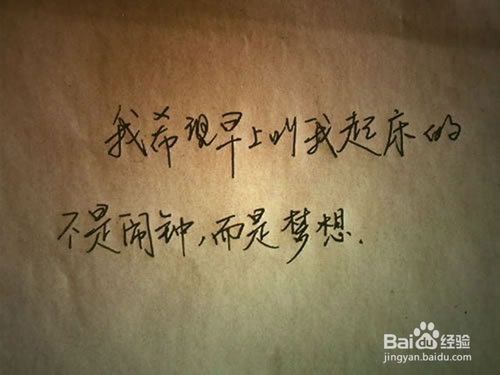 我希现早上叫我起床的
不是闹钟,而是梦想.
Baidu经验
jingyan.baidu.com